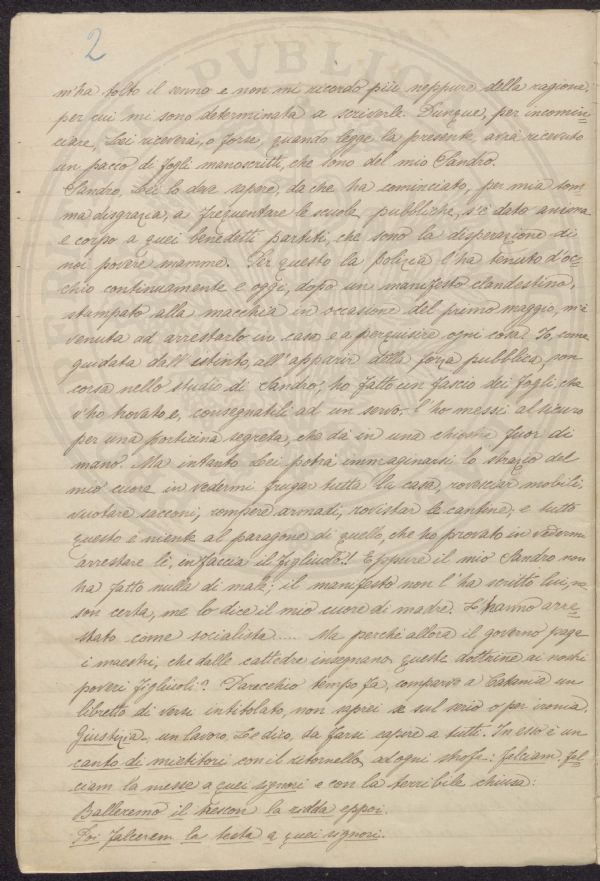 2
m'ha tolto il senno e non mi ricordo più neppure della ragione
per cui mi sono determinata a scriverle. Dunque, per incomin
ciare, Lei riceverà, o forse, quando legge la presente, avrà ricevuto
un pacco di fogli manoscritti, che sono del mio Sandro.
Sandro, Lei lo deve sapere, da che ha cominciato, per mia som
ma disgrazia, a frequentare le scuole pubbliche, s'è dato anima
e corpo a quei benedetti partiti, che sono la disperazione di
noi povere mamme. Per questo la polizia l'ha tenuto d'oc
chio continuamente e oggi, dopo un manifesto clandestino,
stampato alla macchia in occasione del primo maggio, m'è
venuta ad arrestarlo in casa e a perquisire ogni cosa. Io, come
guidata dall'istinto, all'apparir della forza pubblica, son
corsa nello studio di Sandro; ho fatto un fascio dei fogli, che
v'ho trovato e, consegnatili ad un servo, l'ho messi al sicuro
per una porticina segreta, che dà in una fuor di
mano. Ma intanto Lei potrà immaginarsi lo strazio del
mio cuore in vedermi frugar tutta la casa, rovesciar mobili,
vuotare sacconi, rompere armadi, rovistar le cantine; e tutto
questo è niente al paragone di quello, che ho provato in vedermi
arrestare lì, in faccia il figliuolo!! Eppure il mio Sandro non
ha fatto nulla di male; il manifesto non l'ha scritto lui, ne
son certa, me lo dice il mio cuore di madre. Lo hanno arre
stato come socialista..... Ma perchè allora il governo paga
i maestri, che dalle cattedre insegnano queste dottrine ai nostri
poveri figliuoli? Parecchio tempo fa, comparve a Catania un
libretto di versi intitolato, non saprei se sul serio o per ironia,
Giustizia, un lavoro, Le dico, da farsi sapere a tutti. In esso è un
canto di mietitori con il ritornello, ad ogni strofe: Falciam, fal
ciam la messe a quei signori e con la terribile chiusa:
Balleremo il trescon la ridda eppoi.
Poi falcerem la testa a quei signori.
PVBLIC